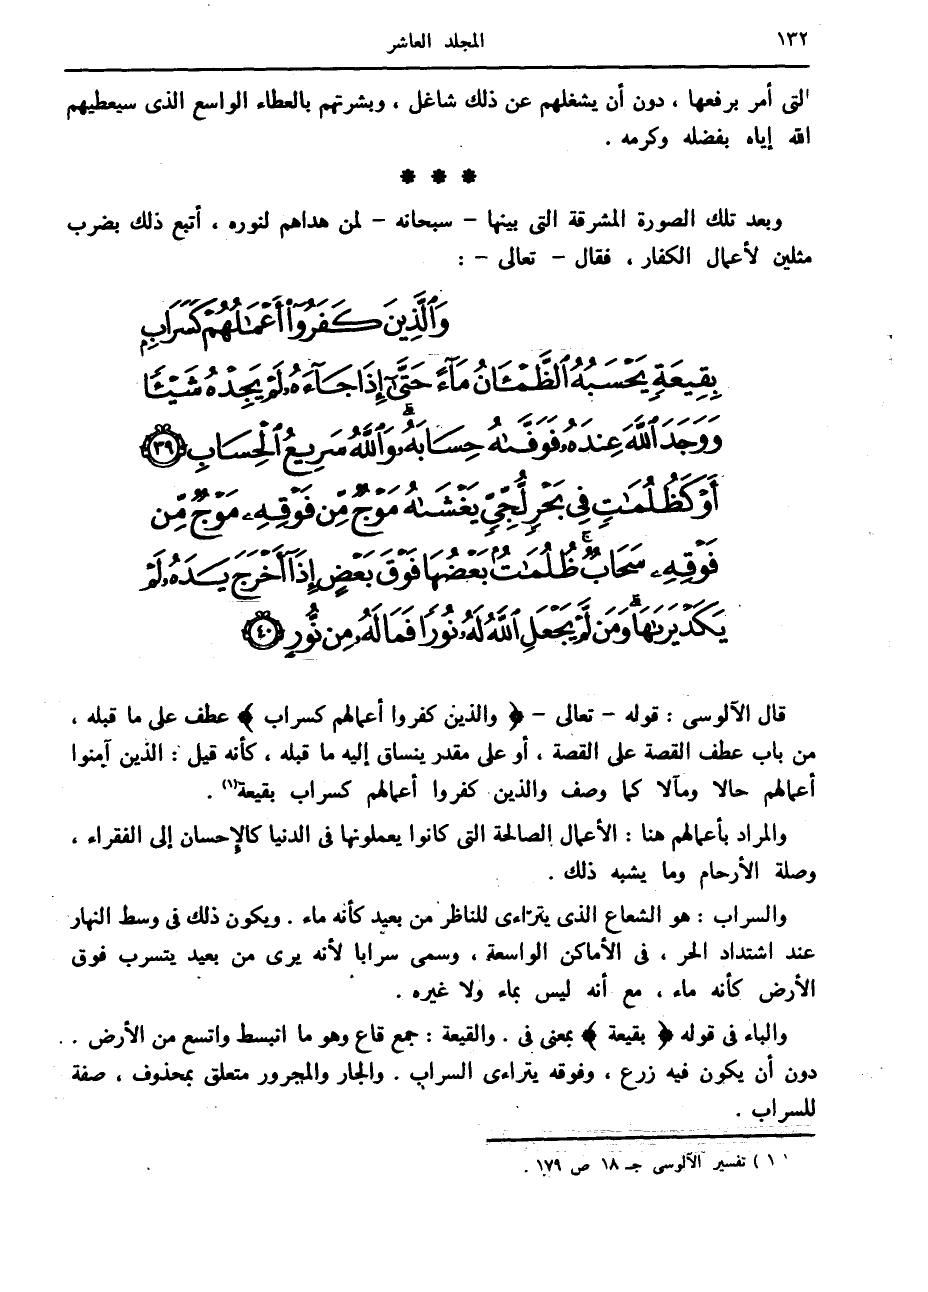 ١٣٢ المجلد العاشر
التى أمر برفعها ، دون أن يشغلهم عن ذلك شاغل ، وبشرتهم بالعطاء الواسع الذى سيعطيهم
الله إياه بفضله وكرمه .
* * *
وبعد تلك الصورة المشرقة التى بينها - سبحانه - لمن هداهم لنوره ، أتبع ذلك بضرب
مثلين لأعمال الكفار ، فقال - تعالى - :
وَٱلَّذِينَ كَفَرُوٓا۟ أَعْمَـٰلُهُمْ كَسَرَابٍۭ
بِقِيعَةٍ يَحْسَبُهُ ٱلظَّمْـَٔانُ مَآءً حَتَّىٰٓ إِذَا جَآءَهُۥ لَمْ يَجِدْهُ شَيْـًٔا
وَوَجَدَ ٱللَّهَ عِندَهُۥ فَوَفَّىٰهُ حِسَابَهُۥ ۗ وَٱللَّهُ سَرِيعُ ٱلْحِسَابِ ٣٩
أَوْ كَظُلُمَـٰتٍ فِى بَحْرٍ لُّجِّىٍّ يَغْشَىٰهُ مَوْجٌ مِّن فَوْقِهِۦ مَوْجٌ مِّن
فَوْقِهِۦ سَحَابٌ ۚ ظُلُمَـٰتٌۢ بَعْضُهَا فَوْقَ بَعْضٍ إِذَآ أَخْرَجَ يَدَهُۥ لَمْ
يَكَدْ يَرَىٰهَا ۗ وَمَن لَّمْ يَجْعَلِ ٱللَّهُ لَهُۥ نُورًا فَمَا لَهُۥ مِن نُّورٍ ٤٠
قال الآلوسى : قوله - تعالى - ﴿ والذين كفروا أعمالهم كسراب ﴾ عطف على ما قبله ،
من باب عطف القصة على القصة ، أو على مقدر ينساق إليه ما قبله ، كأنه قيل : الذين آمنوا
أعمالهم حالا ومآلا كما وصف والذين كفروا أعمالهم كسراب بقيعة(١) .
والمراد بأعمالهم هنا : الأعمال الصالحة التى كانوا يعملونها فى الدنيا كالإحسان إلى الفقراء ،
وصلة الأرحام وما يشبه ذلك .
والسراب : هو الشعاع الذى يتراءى للناظر من بعيد كأنه ماء . ويكون ذلك فى وسط النهار
عند اشتداد الحر ، فى الأماكن الواسعة ، وسمى سرابا لأنه يرى من بعيد يتسرب فوق
الأرض كأنه ماء ، مع أنه ليس بماء ولا غيره .
والباء فى قوله ﴿ بقيعة ﴾ بمعنى فى . والقيعة : جمع قاع وهو ما انبسط واتسع من الأرض . .
دون أن يكون فيه زرع ، وفوقه يتراءى السراب . والجار والمجرور متعلق بمحذوف ، صفة
للسراب .
( ١ ) تفسير الآلوسى جـ ١٨ ص ١٧٩ .